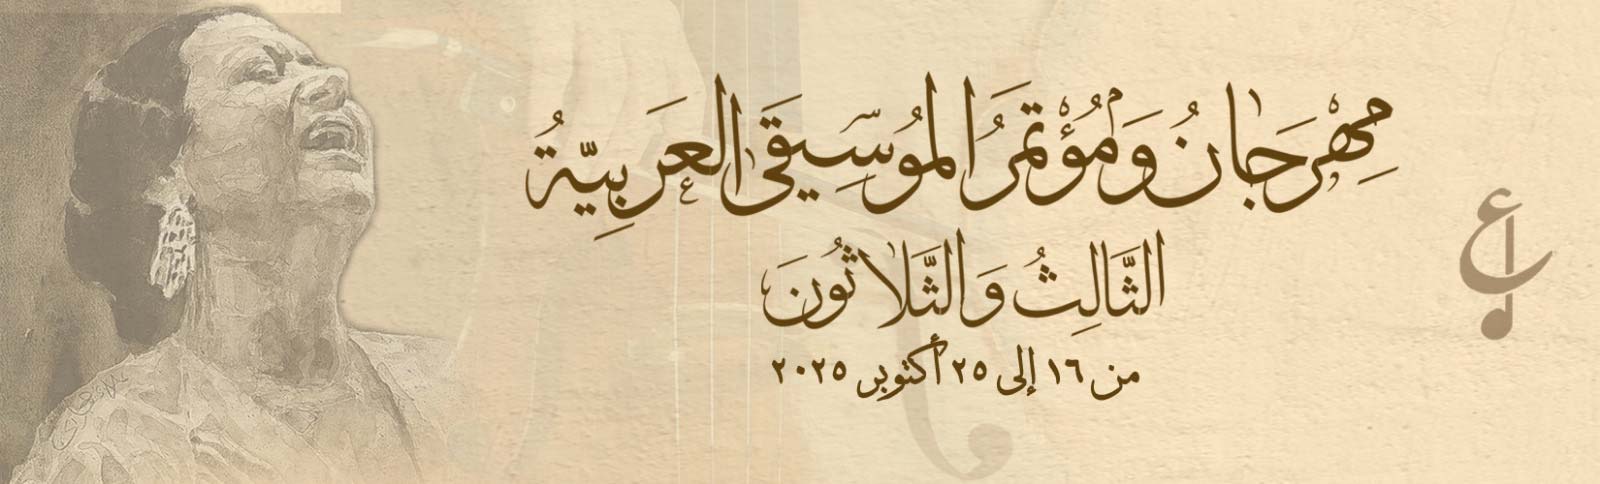 مِهْرَجَانُ وَمُؤْتَمَرُ المُوسِيقَى العَرَبِيَّةُ
الثَّالِثُ وَالثَّلَاثُونَ
من ١٦ إلى ٢٥ أكتوبر ٢٠٢٥